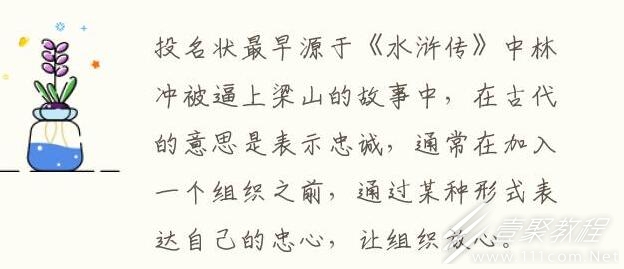 投名状最早源于《水浒传》中林
冲被逼上梁山的故事中，在古代
的意思是表示忠诚，通常在加入
一个组织之前，通过某种形式表
达自己的忠心，让组织放心。
壹聚教程
www.111com.Net